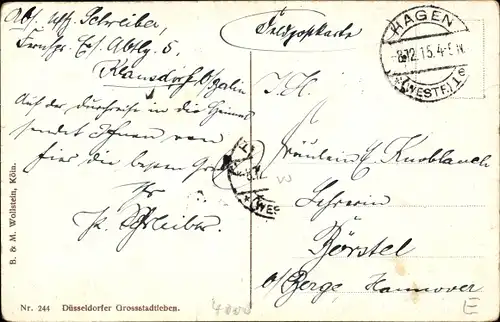 Abs. Uff. Schreiber,
Fernspr. Ers. Abtlg. 5.
Klausdorf b/Berlin
Auf der Durchreise in die Heimat
sendet Ihnen von
hier die besten Grüße
Ihr
K. Schreiber.
Feldpostkarte
HAGEN
8.12.15. 4-5 N.
* (WESTF.) 1 e
S. H.
Fräulein E. Knoblauch
Lehrerin
Börstel
b/Berge, Hannover
B. & M. Wollstein, Köln.
Nr. 244 Düsseldorfer Grossstadtleben.
E